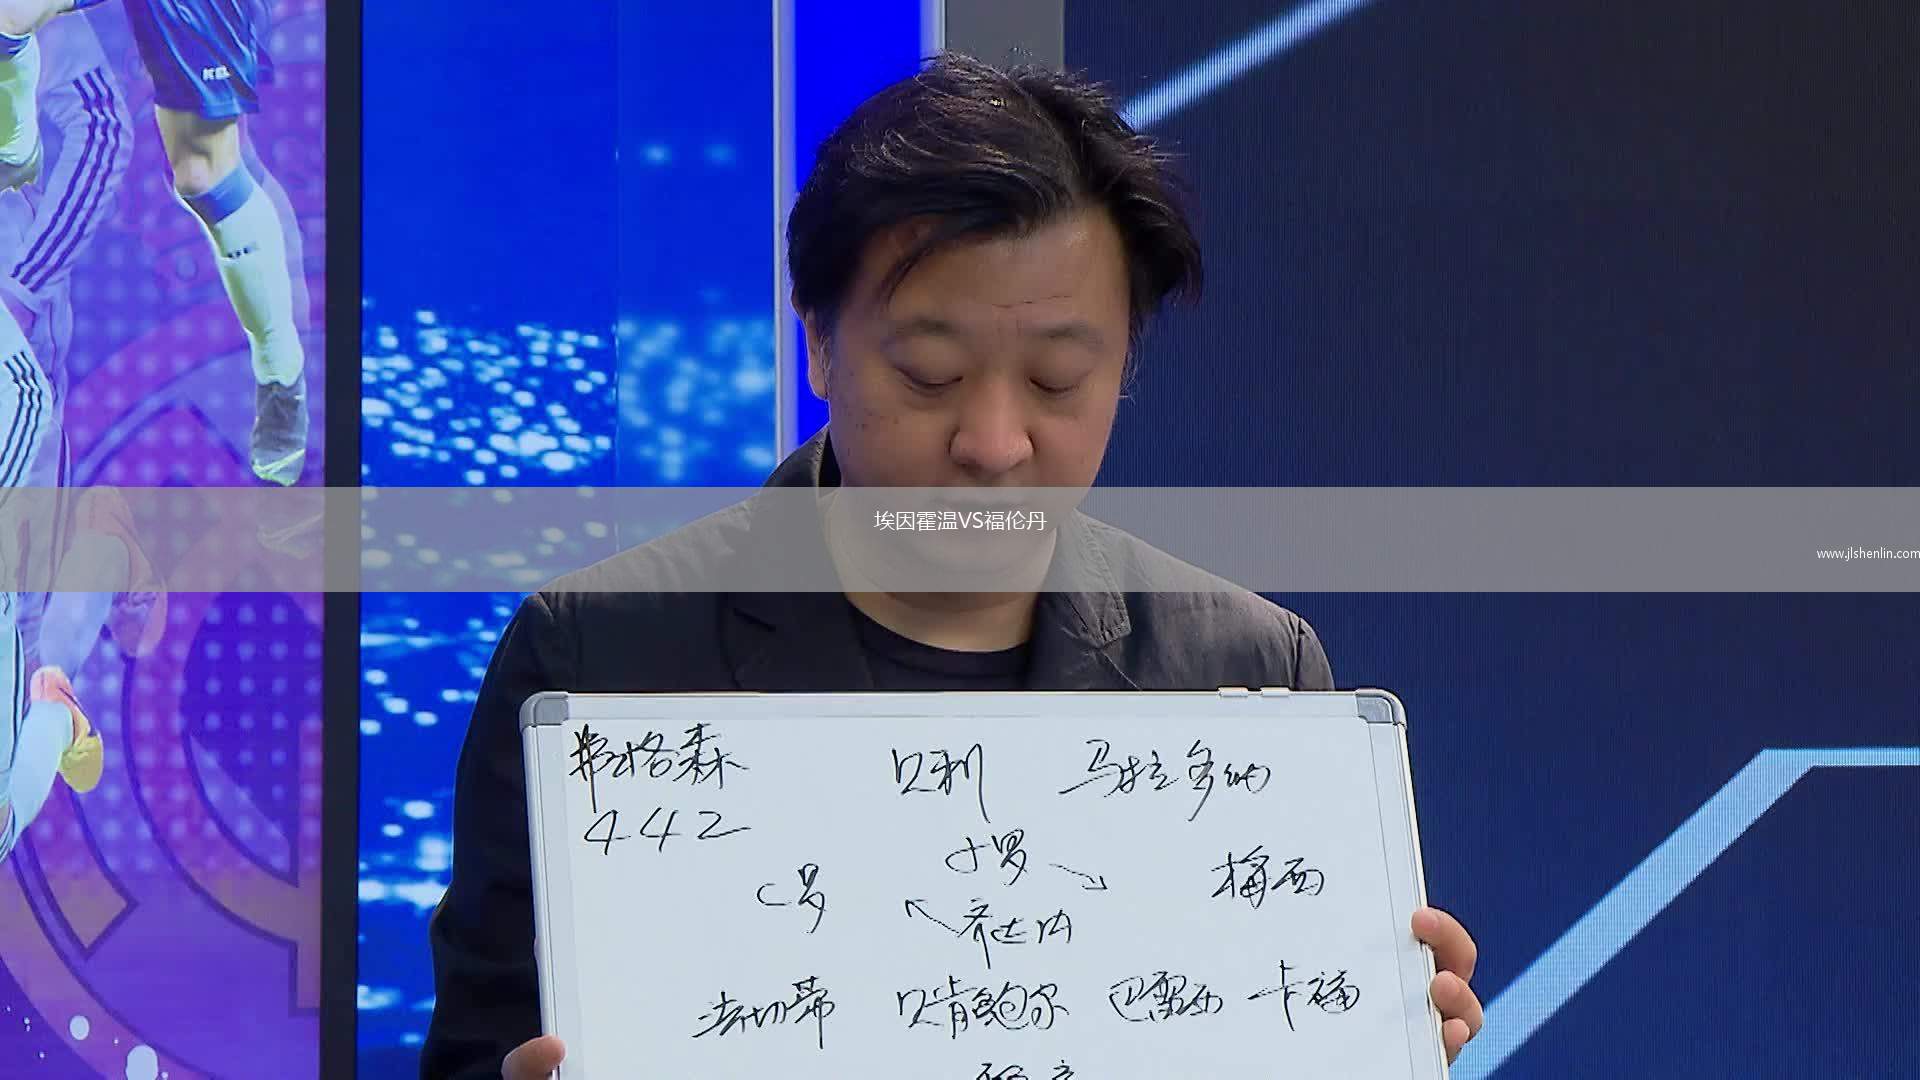 埃因霍温VS福伦丹
www.jlshenlin.com
弗格森 贝利 马拉多纳
442
小罗
C罗 梅西
齐达内
法切蒂 贝肯鲍尔 巴雷西 卡福